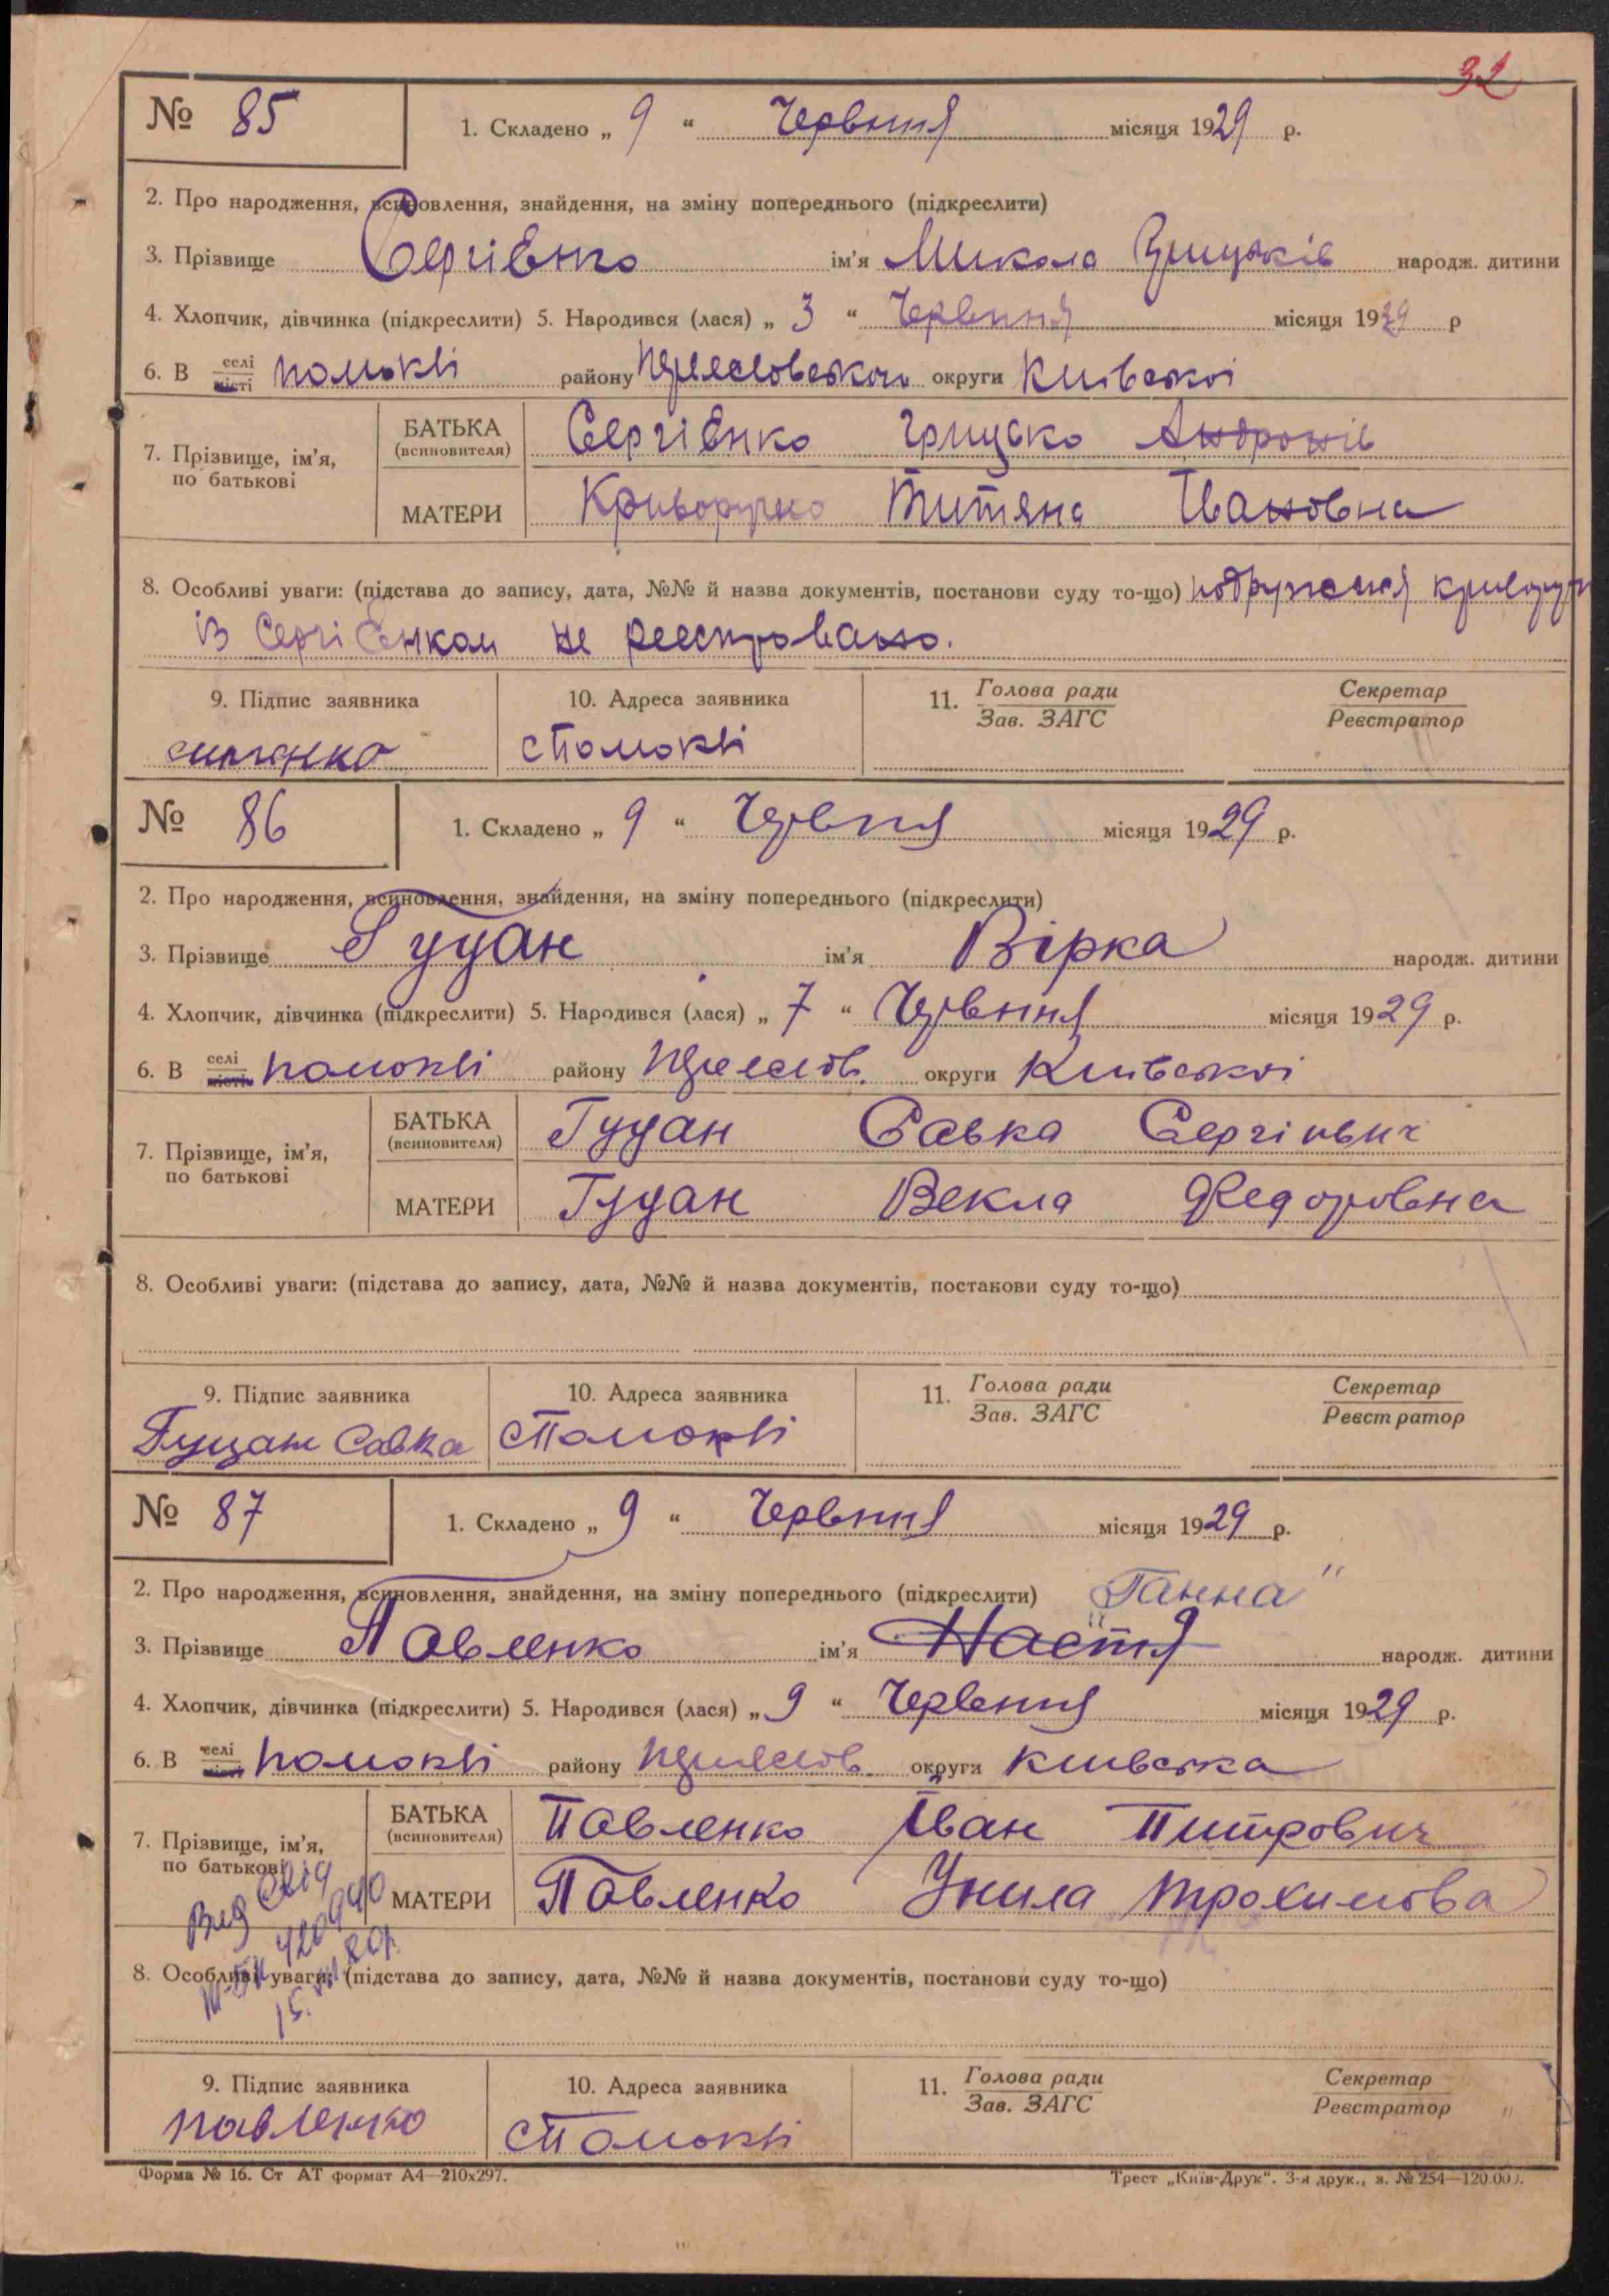 32
№ 85 1. Складено „ 9 “ Червння місяця 1929 р.
2. Про народження, всиновлення, знайдення, на зміну попереднього (підкреслити)
3. Прізвище Сергієнко ім'я Микола Грицьків народж. дитини
4. Хлопчик, дівчинка (підкреслити) 5. Народився (лася) „ 3 “ Червння місяця 1929 р
6. В селі місті Помоклі району округи Київскої
7. Прізвище, ім'я, по батькові БАТЬКА (всиновителя) Сергієнко Грицько Андронів
МАТЕРИ Криворучко Титяна Івановна
8. Особливі уваги: (підстава до запису, дата, №№ й назва документів, постанови суду то-що) подружжя
із Сергієнком не реестровано.
9. Підпис заявника 10. Адреса заявника 11. Голова ради Зав. ЗАГС Секретар Реєстратор
сПомоклі
№ 86 1. Складено „ 9 “ Червня місяця 1929 р.
2. Про народження, всиновлення, знайдення, на зміну попереднього (підкреслити)
3. Прізвище Гуцан ім'я Вірка народж. дитини
4. Хлопчик, дівчинка (підкреслити) 5. Народився (лася) „ 7 “ Червння місяця 1929 р.
6. В селі місті Помоклі району округи Київскої
7. Прізвище, ім'я, по батькові БАТЬКА (всиновителя) Гуцан Савка Сергіивич
МАТЕРИ Гуцан Векла Федоровна
8. Особливі уваги: (підстава до запису, дата, №№ й назва документів, постанови суду то-що)
9. Підпис заявника 10. Адреса заявника 11. Голова ради Зав. ЗАГС Секретар Реєстратор
Гуцан Савка сПомоклі
№ 87 1. Складено „ 9 “ Червння місяця 1929 р.
2. Про народження, всиновлення, знайдення, на зміну попереднього (підкреслити) „Ганна"
3. Прізвище Павленко ім'я Настя народж. дитини
4. Хлопчик, дівчинка (підкреслити) 5. Народився (лася) „ 9 “ Червення місяця 1929 р.
6. В селі місті Помоклі району округи Київська
7. Прізвище, ім'я, по батькові БАТЬКА (всиновителя) Павленко Іван Питрович
МАТЕРИ Павленко Унила Трохимова
8. Особливі уваги: (підстава до запису, дата, №№ й назва документів, постанови суду то-що)
9. Підпис заявника 10. Адреса заявника 11. Голова ради Зав. ЗАГС Секретар Реєстратор
павленко сПомоклі
Форма № 16. Ст АТ формат А4—210х297. Трест „Київ-Друк“. 3-я друк., з. № 254—120.000.